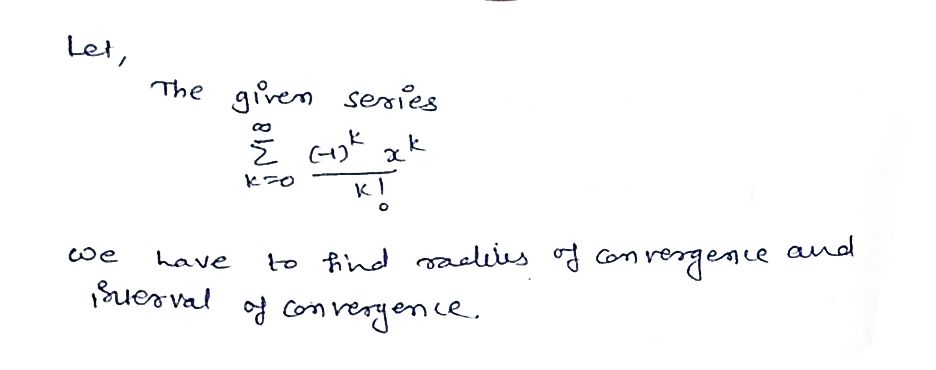 Let,
The given series
∞
Σ (-1)^k x^k
k=0 k!
we have to find radius of convergence and
interval of convergence.